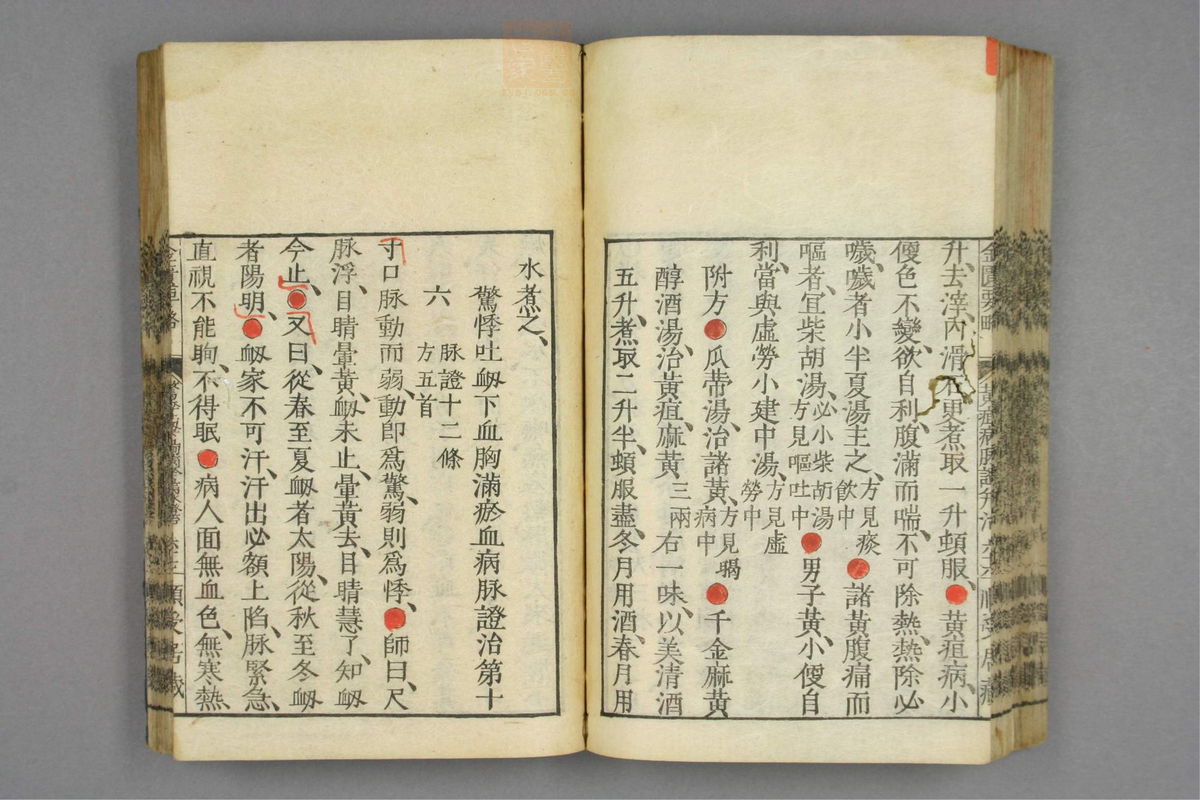 升、去滓、內滑石更煮取一升頓服、●黃疸病、小
便色不變、欲自利、腹滿而喘、不可除熱、熱除必
噦、噦者小半夏湯主之、方見痰飮中●諸黃腹痛而
嘔者、宜柴胡湯、必小柴胡湯方見嘔吐中●男子黃、小便自
利、當與虛勞小建中湯、方見虛勞中
附方●瓜蔕湯、治諸黃、方見暍病中●千金麻黃
醇酒湯、治黃疸、麻黃三兩右一味、以美清酒
五升、煮取二升半、頓服盡、冬月用酒、春月用
水煮之、
驚悸吐衂下血胸滿瘀血病脉證治第十
六
脉證十二條
方五首
寸口脉動而弱、動卽爲驚、弱則爲悸、●師曰、尺
脉浮、目睛暈黃、衂未止、暈黃去、目睛慧了、知衂
今止、●又曰、從春至夏衂者太陽、從秋至冬衂
者陽明、●衂家不可汗、汗出必額上陷、脉緊急、
直視不能眴、不得眠●病人面無血色、無寒熱、